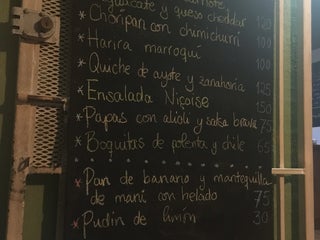 guacate y queso cheddar 125
* Choripan con chimichurri 100
* Harira marroquí 100
* Quiche de ayote y zanahoria 125
* Ensalada Niçoise 150
* Papas con alioli y salsa brava 75
* Boquitas de polenta y chile 65
* Pan de banano y mantequilla
de maní con helado 75
* Pudin de limón 30